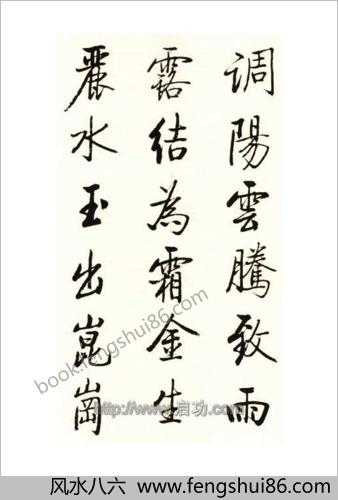 调陽雲騰致雨
露结為霜金生
麗水玉出崑崗
book.fengshui86.com
http://www.启功.com
风水八六 www.fengshui86.com